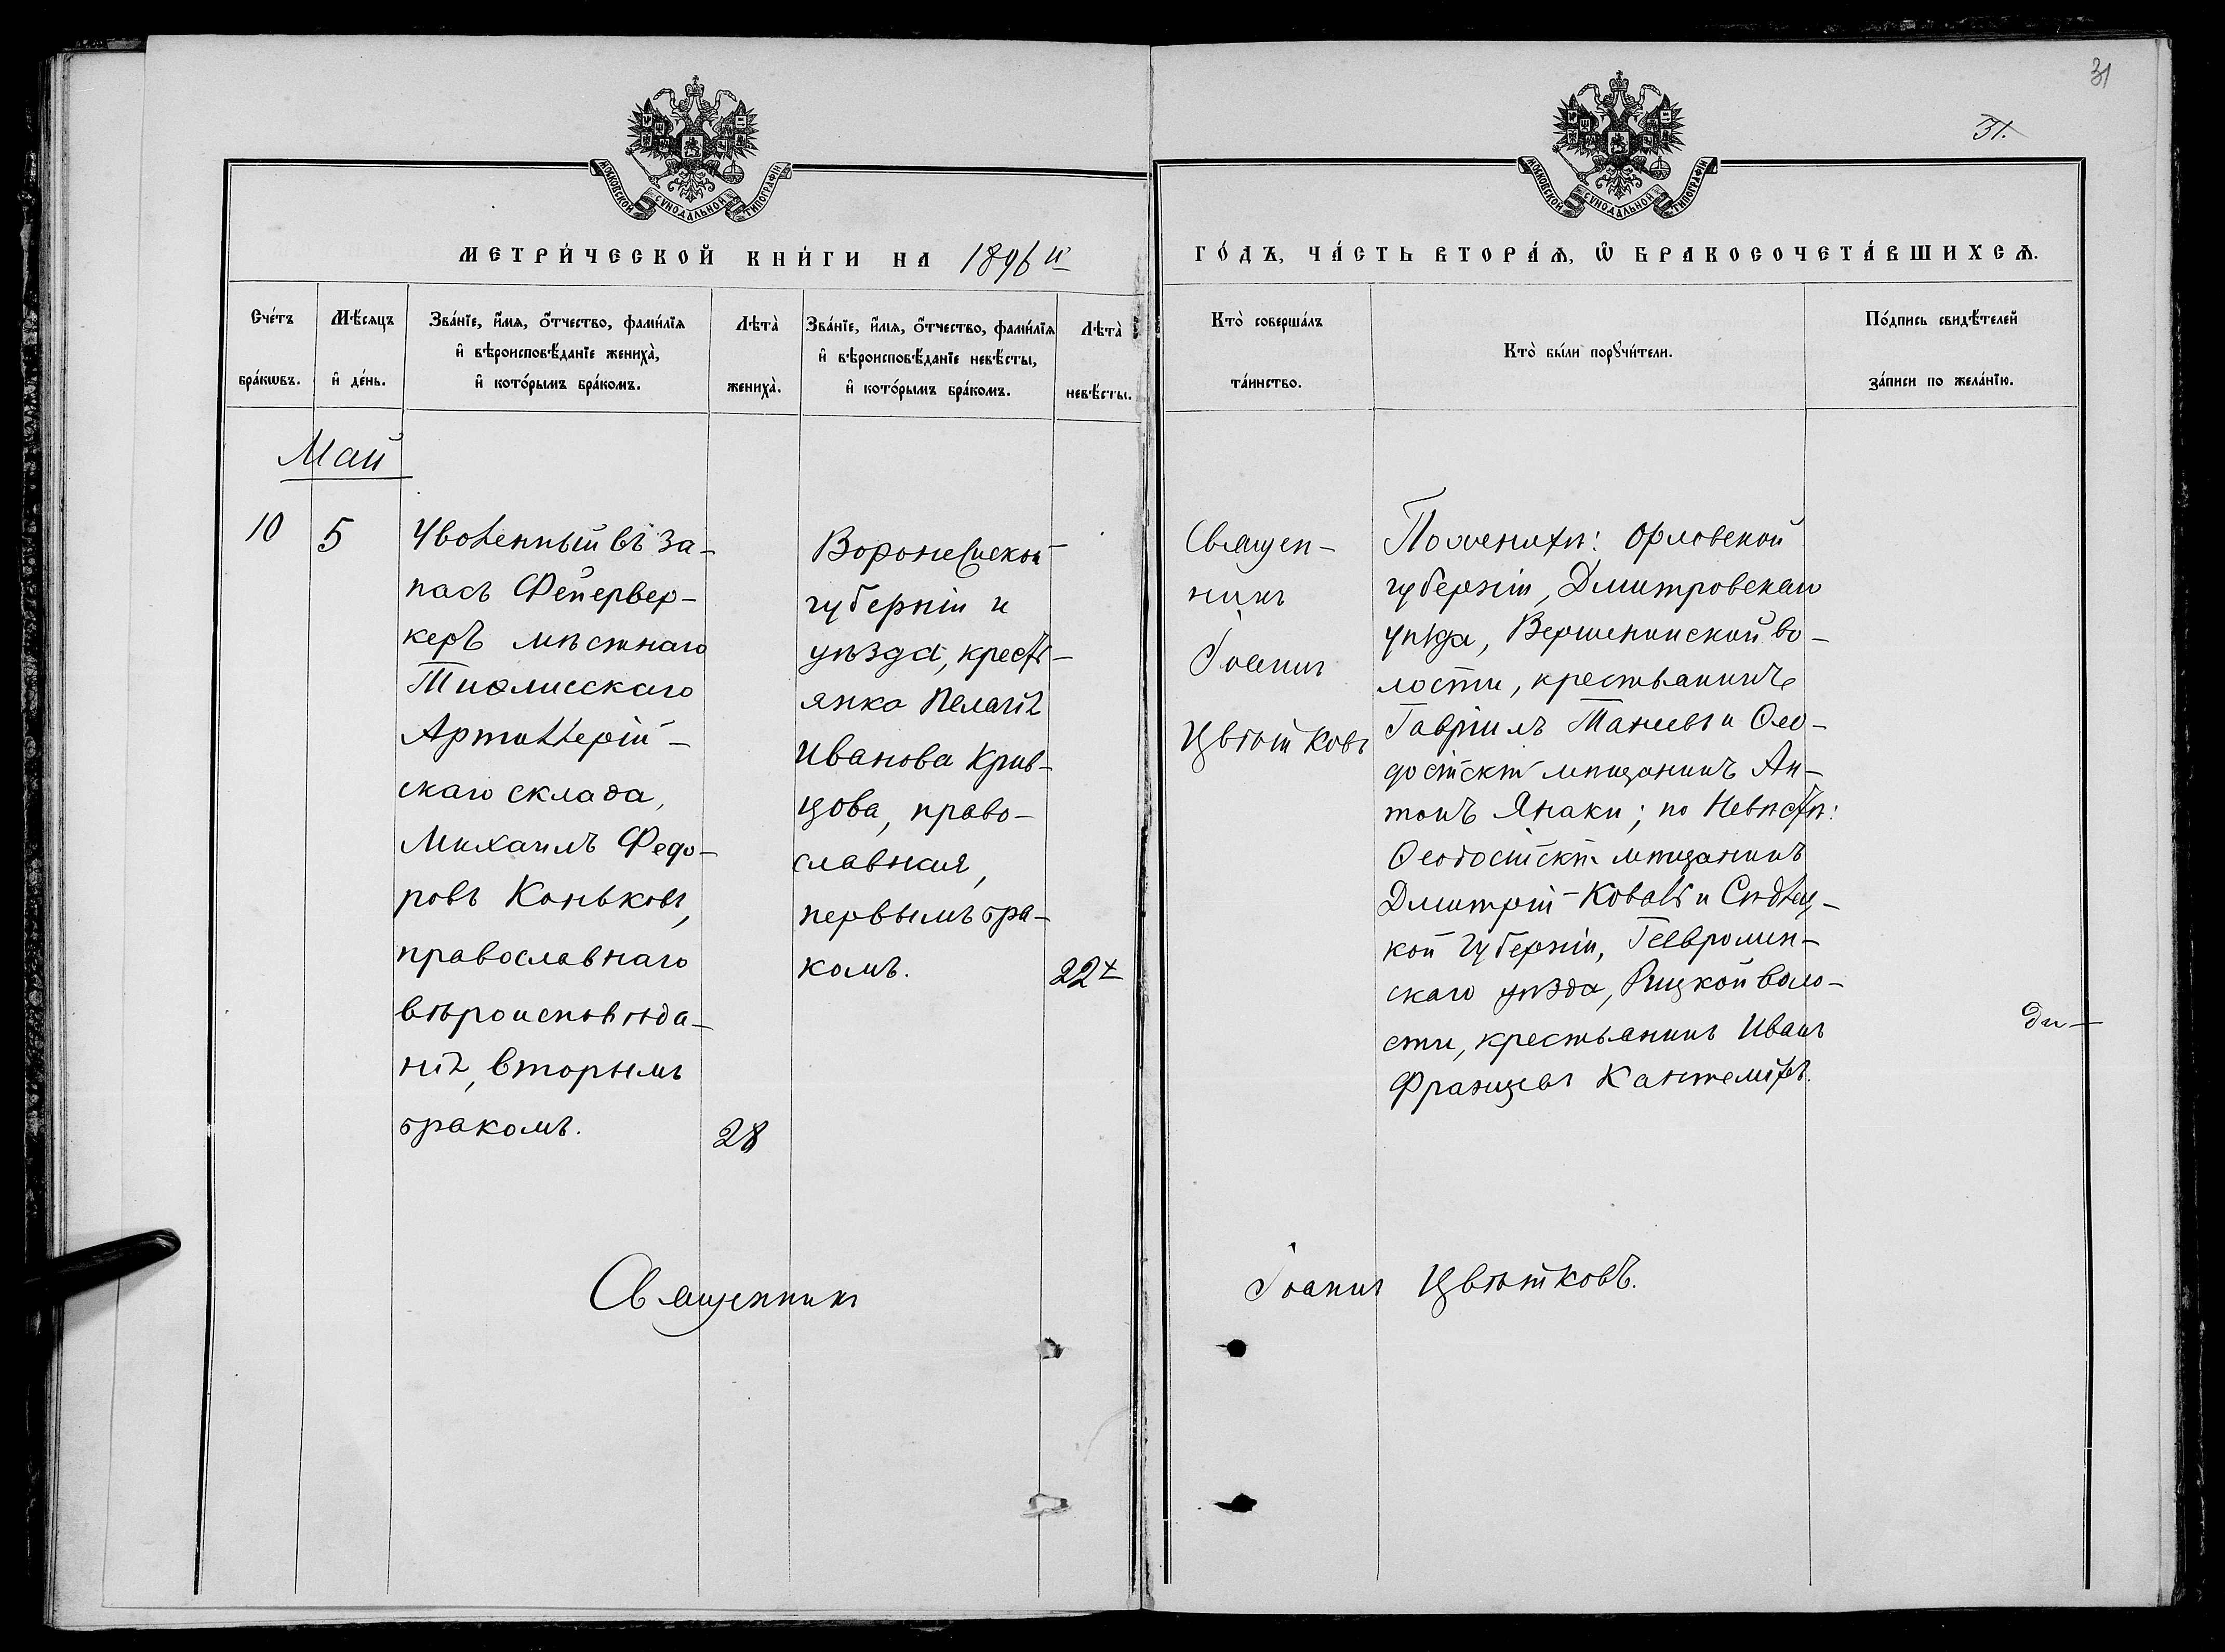 31
31.
МОСКОВСКОЙ СѴНОДАЛЬНОЙ ТИПОГРАФІИ
МОСКОВСКОЙ СѴНОДАЛЬНОЙ ТИПОГРАФІИ
МЕТРИ́ЧЕСКОЙ КНИ́ГИ НА 1896 й
ГО́ДЪ, ЧА́СТЬ ВТОРА́Ѧ, Ѿ БРАКОСОЧЕТА́ВШИХСѦ.
Сче́тъ
бра́кѡвъ.
Мѣ́сяцъ
и҆ де́нь.
Зва́нїе, и҆́мѧ, ѻ҆́тчество, фами́лїѧ
и҆ вѣроисповѣ́данїе жениха̀,
и҆ кото́рымъ бра́комъ.
Лѣта̀
жениха̀.
Зва́нїе, и҆́мѧ, ѻ҆́тчество, фами́лїѧ
и҆ вѣроисповѣ́данїе невѣ́сты,
и҆ кото́рымъ бра́комъ.
Лѣта̀
невѣ́сты.
Кто̀ соверша́лъ
та́инство.
Кто̀ бы́ли порꙋчи́тели.
По́дпись свидѣ́телей
за́писи по жела́нїю.
Май
10
5
Уволенный въ за-
пасъ Фейервер-
керъ мѣстнаго
Тифлисскаго
Артиллерій-
скаго склада,
Михаилъ Федо-
ровъ Коньковъ,
православнаго
вѣроисповѣда-
нія, вторымъ
бракомъ.
28
Воронежской
губерніи и
уѣзда, кресть-
янка Пелагія
Иванова Крив-
цова, право-
славная,
первымъ бра-
комъ.
22
Священ-
никъ
Іоаннъ
Цвѣтковъ
По женихѣ: Орловской
губерніи, Дмитровскаго
уѣзда, Вершининской во-
лости, крестьянинъ
Гавріилъ Танеевъ и Ѳео-
досійскій мѣщанинъ Ан-
тонъ Янаки; по невѣстѣ:
Ѳеодосійскій мѣщанинъ
Дмитрій Коваль и Сѣдлец-
кой губерніи,
скаго уѣзда, Рицкой воло-
сти, крестьянинъ Иванъ
Францевъ Кантеміръ.
ди-
Священникъ
Іоаннъ Цвѣтковъ.